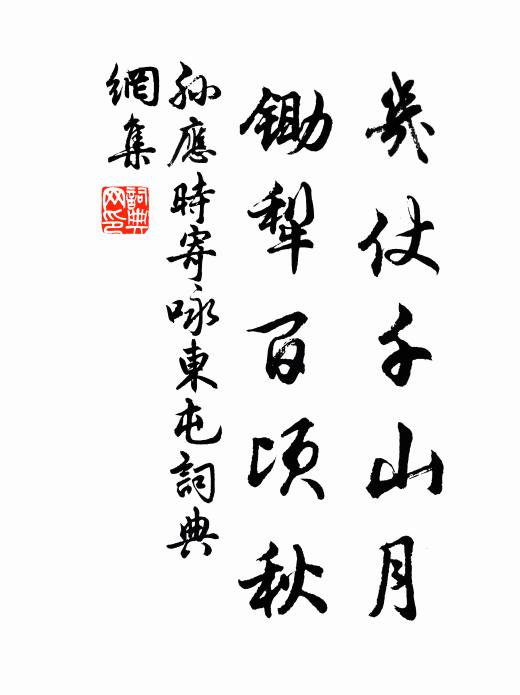 幾仗千山月
鋤犁百頃秋
孫應時寄咏東屯詞典
網集
詞典
网印